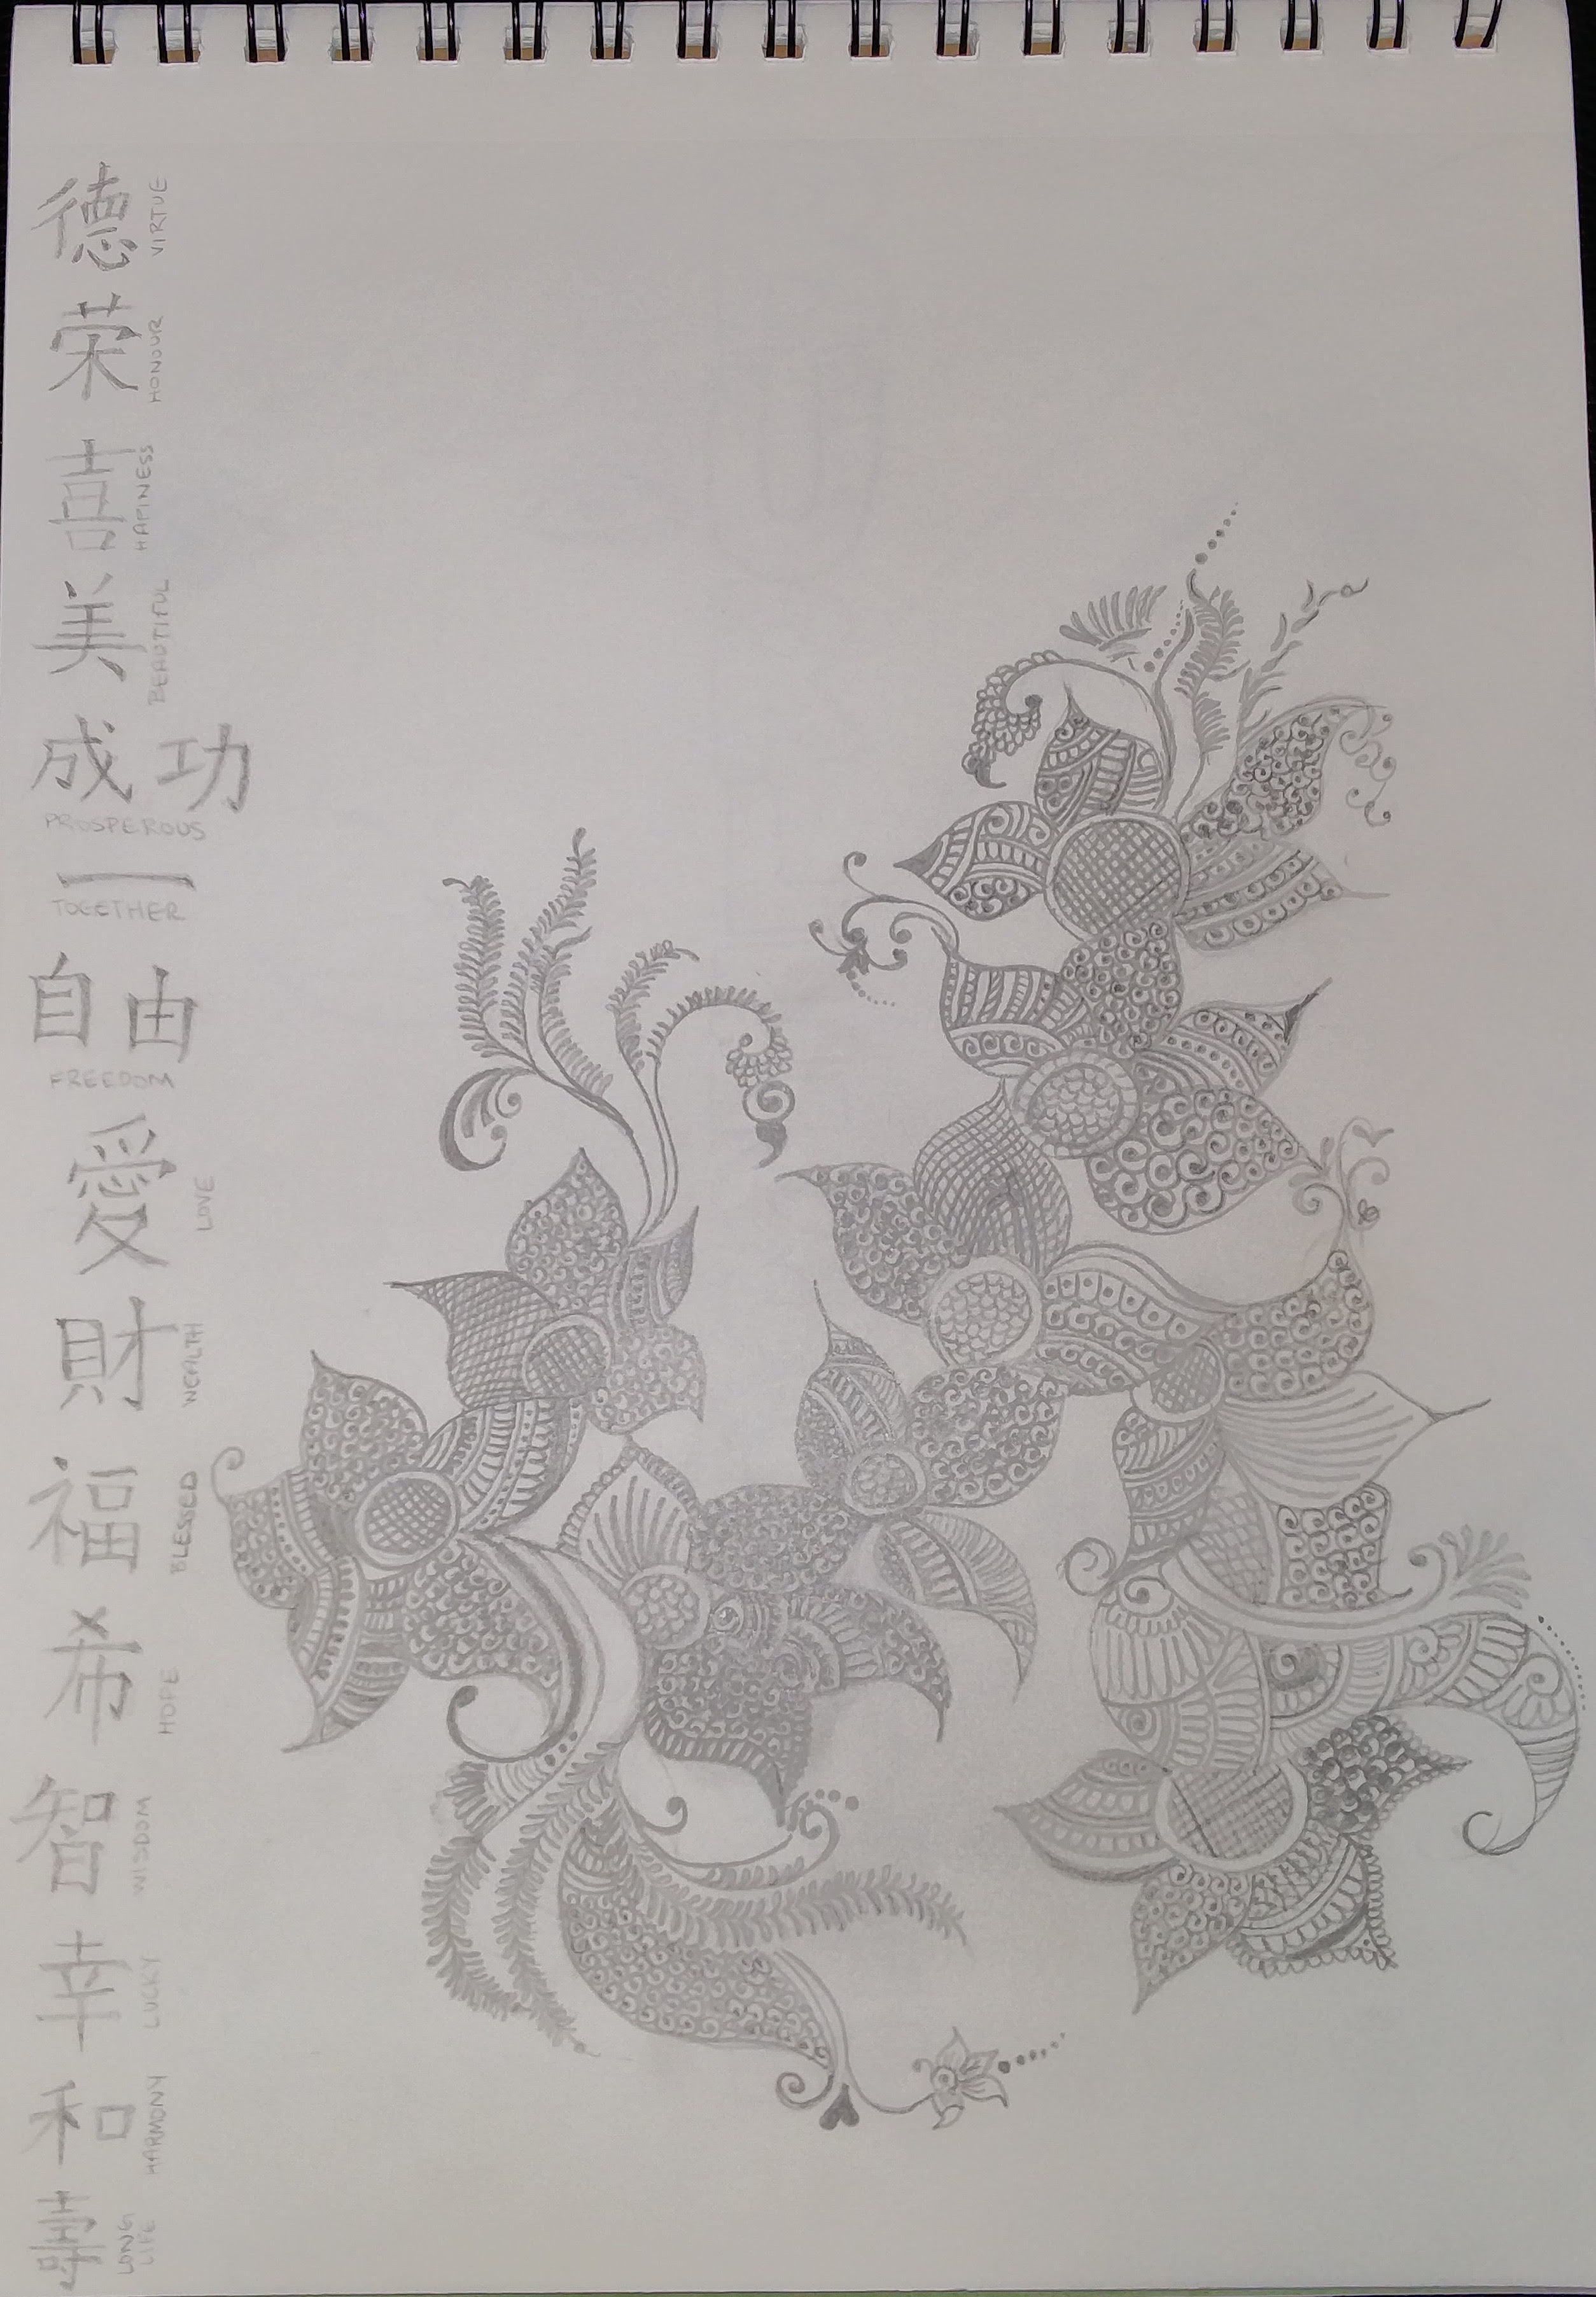 德
VIRTUE
荣
HONOUR
喜
HAPINESS
美
BEAUTIFUL
成功
PROSPEROUS
一
TOGETHER
自由
FREEDOM
愛
LOVE
財
WEALTH
福
BLESSED
希
HOPE
智
WISDOM
幸
LUCKY
和
HARMONY
壽
LONG
LIFE